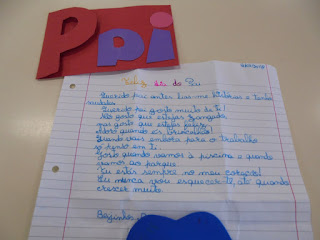 Ppi
do Pai
Querido pai antes
saudades
Querido pai gosto muito de ti!
Não gosto que estejas zangado,
mas gosto que estejas feliz.
Adoro quando és brincalhão!
Quando vais embora para o trabalho
só penso em ti.
Gosto quando vamos à piscina e quando
vamos ao parque.
Tu estás sempre no meu coração!
Eu nunca vou esquecer-te, até quando
crescer muito.
Beijinhos